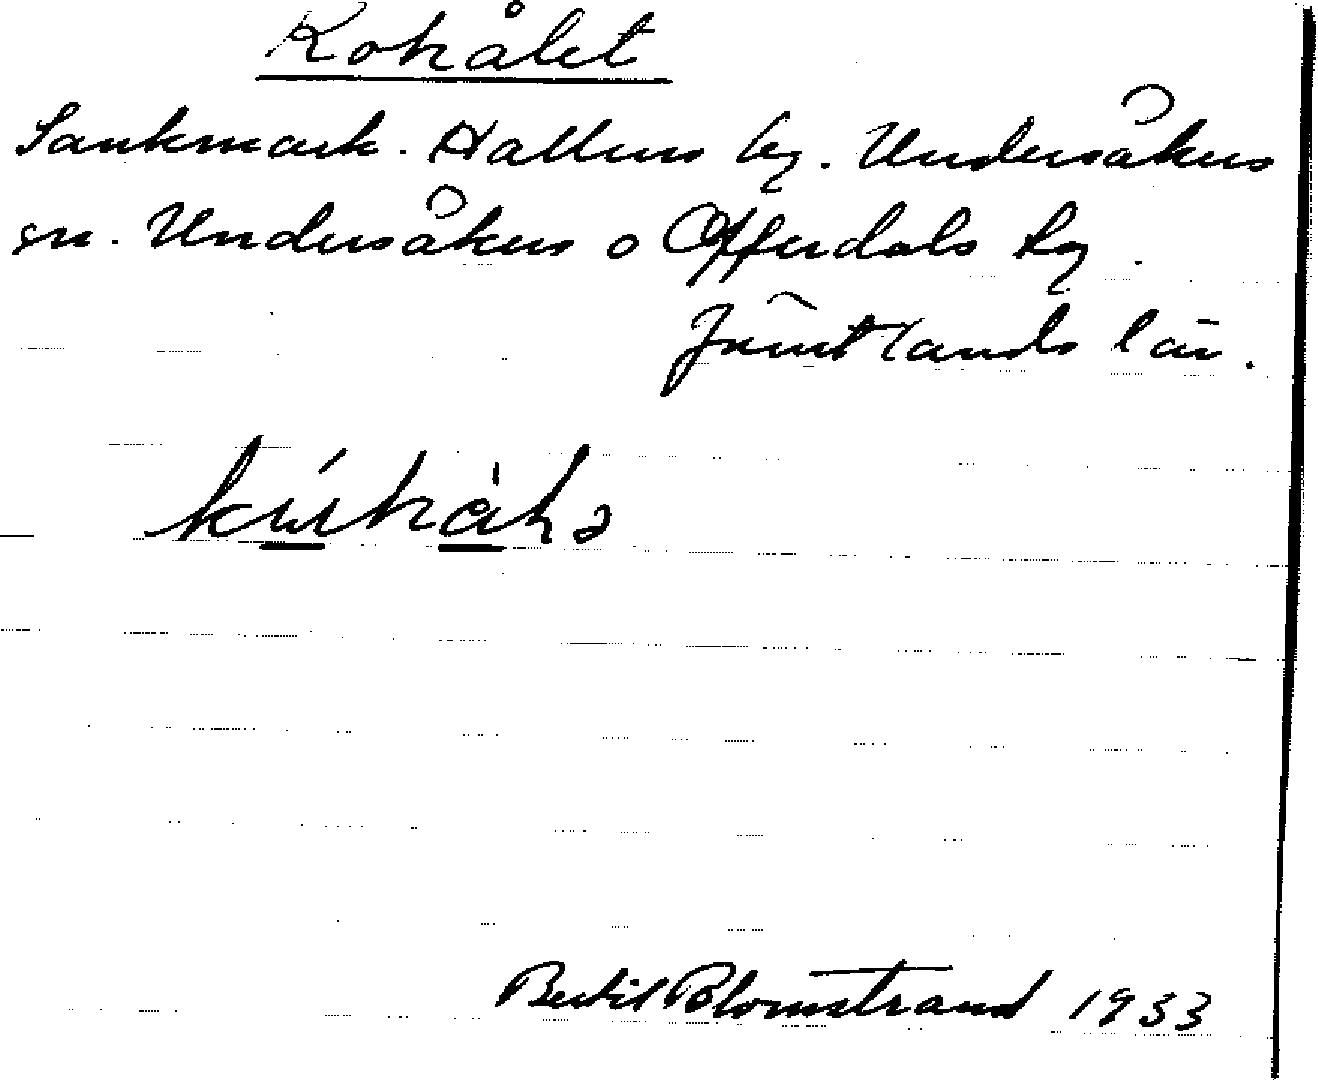 Kohålet
Sankmark. Hallens by. Undersåkers
sn. Undersåkers o Offerdals tg.
Jämtlands län.
Bertil Blomstrand 1933